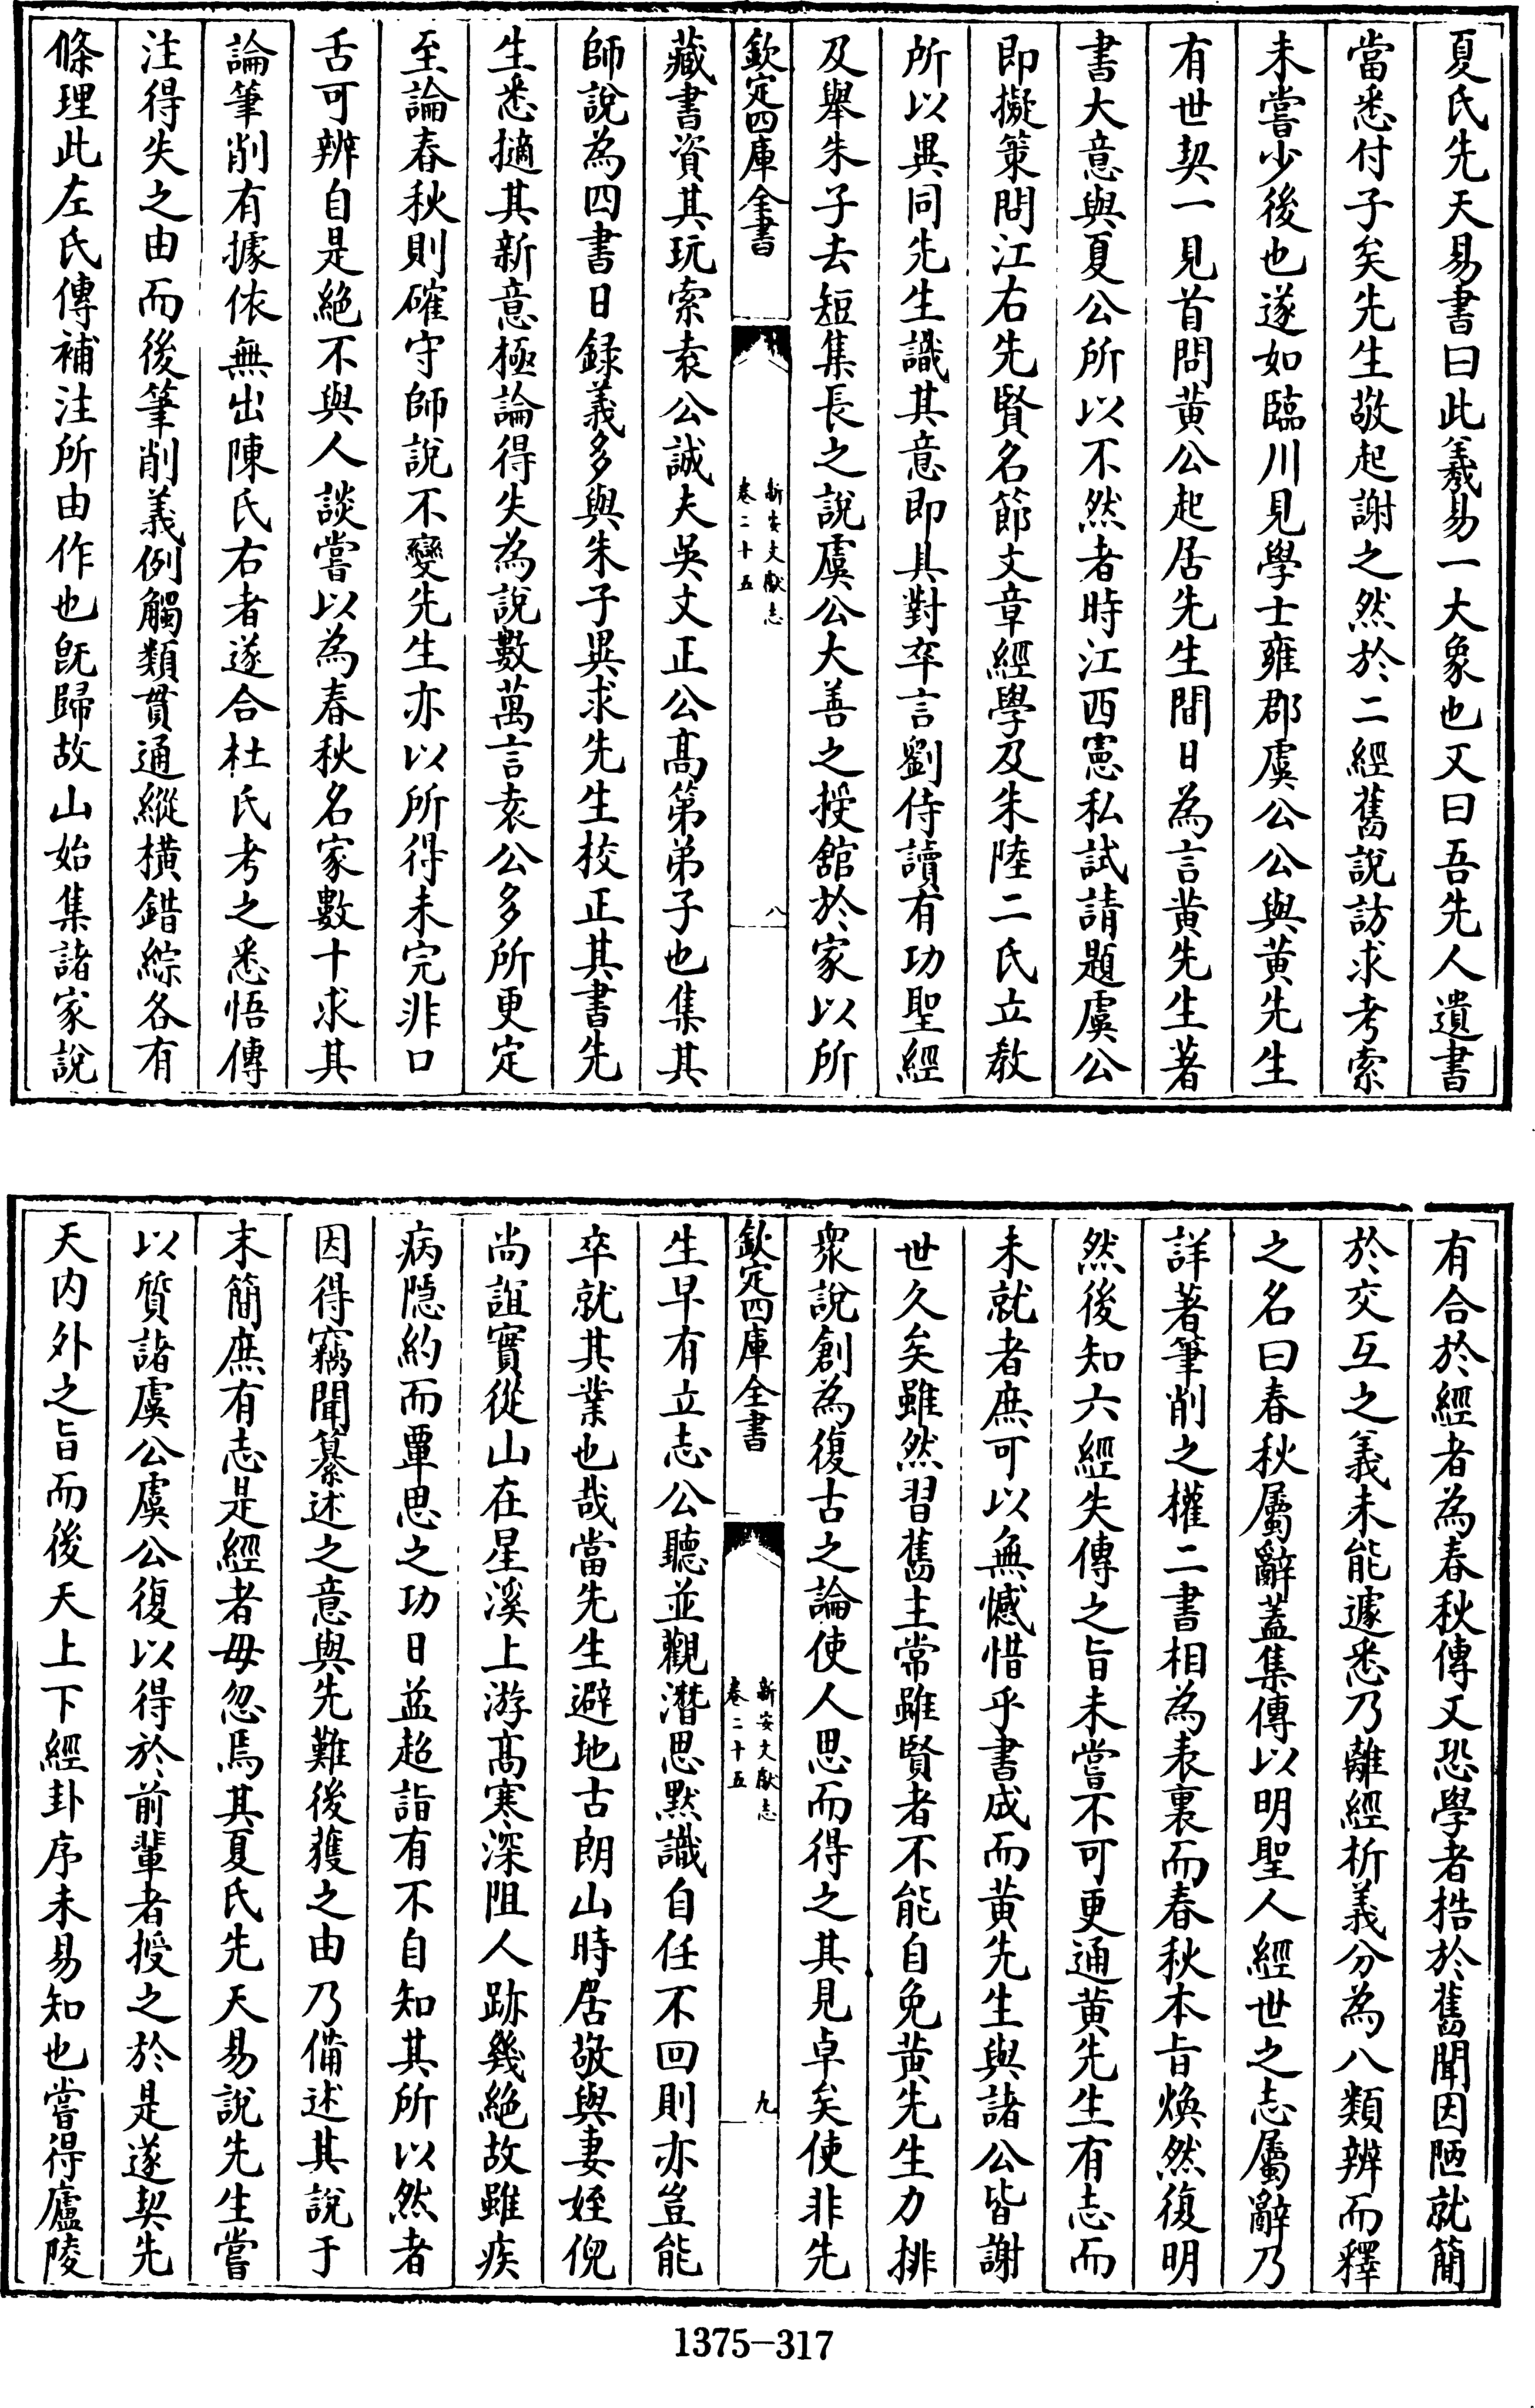 夏氏先天易書曰此羲易一大象也又曰吾先人遺書
當悉付子矣先生敬起謝之然於二經舊說訪求考索
未嘗少後也遂如臨川見學士雍郡虞公公與黄先生
有世契一見首問黄公起居先生間日為言黄先生著
書大意與夏公所以不然者時江西憲私試請題虞公
即擬策問江右先賢名節文章經學及朱陸二氏立教
所以異同先生識其意即具對卒言劉侍讀有功聖經
及舉朱子去短集長之說虞公大善之授舘於家以所
欽定四庫全書
新安文獻志
卷二十五
八
藏書資其玩索袁公誠夫吳文正公髙第弟子也集其
師說為四書日録義多與朱子異求先生校正其書先
生悉擿其新意極論得失為說數萬言袁公多所更定
至論春秋則確守師說不變先生亦以所得未完非口
舌可辨自是絶不與人談嘗以為春秋名家數十求其
論筆削有據依無出陳氏右者遂合杜氏考之悉悟傳
注得失之由而後筆削義例觸類貫通縱横錯綜各有
條理此左氏傳補注所由作也旣歸故山始集諸家說
有合於經者為春秋傳又恐學者梏於舊聞因陋就簡
於交互之義未能遽悉乃離經析義分為八類辨而釋
之名曰春秋屬辭蓋集傳以明聖人經世之志屬辭乃
詳著筆削之權二書相為表裏而春秋本旨煥然復明
然後知六經失傳之旨未嘗不可更通黄先生有志而
未就者庶可以無憾惜乎書成而黄先生與諸公皆謝
世久矣雖然習舊主常雖賢者不能自免黄先生力排
衆說創為復古之論使人思而得之其見卓矣使非先
欽定四庫全書
新安文獻志
卷二十五
九
生早有立志公聽並觀潛思默識自任不回則亦豈能
卒就其業也哉當先生避地古朗山時居敬與妻姪倪
尚誼實從山在星溪上游髙寒深阻人跡幾絶故雖疾
病隱約而覃思之功日益超詣有不自知其所以然者
因得竊聞纂述之意與先難後獲之由乃備述其說于
末簡庶有志是經者毋忽焉其夏氏先天易說先生嘗
以質諸虞公虞公復以得於前輩者授之於是遂契先
天内外之旨而後天上下經卦序未易知也嘗得廬陵
1375-317